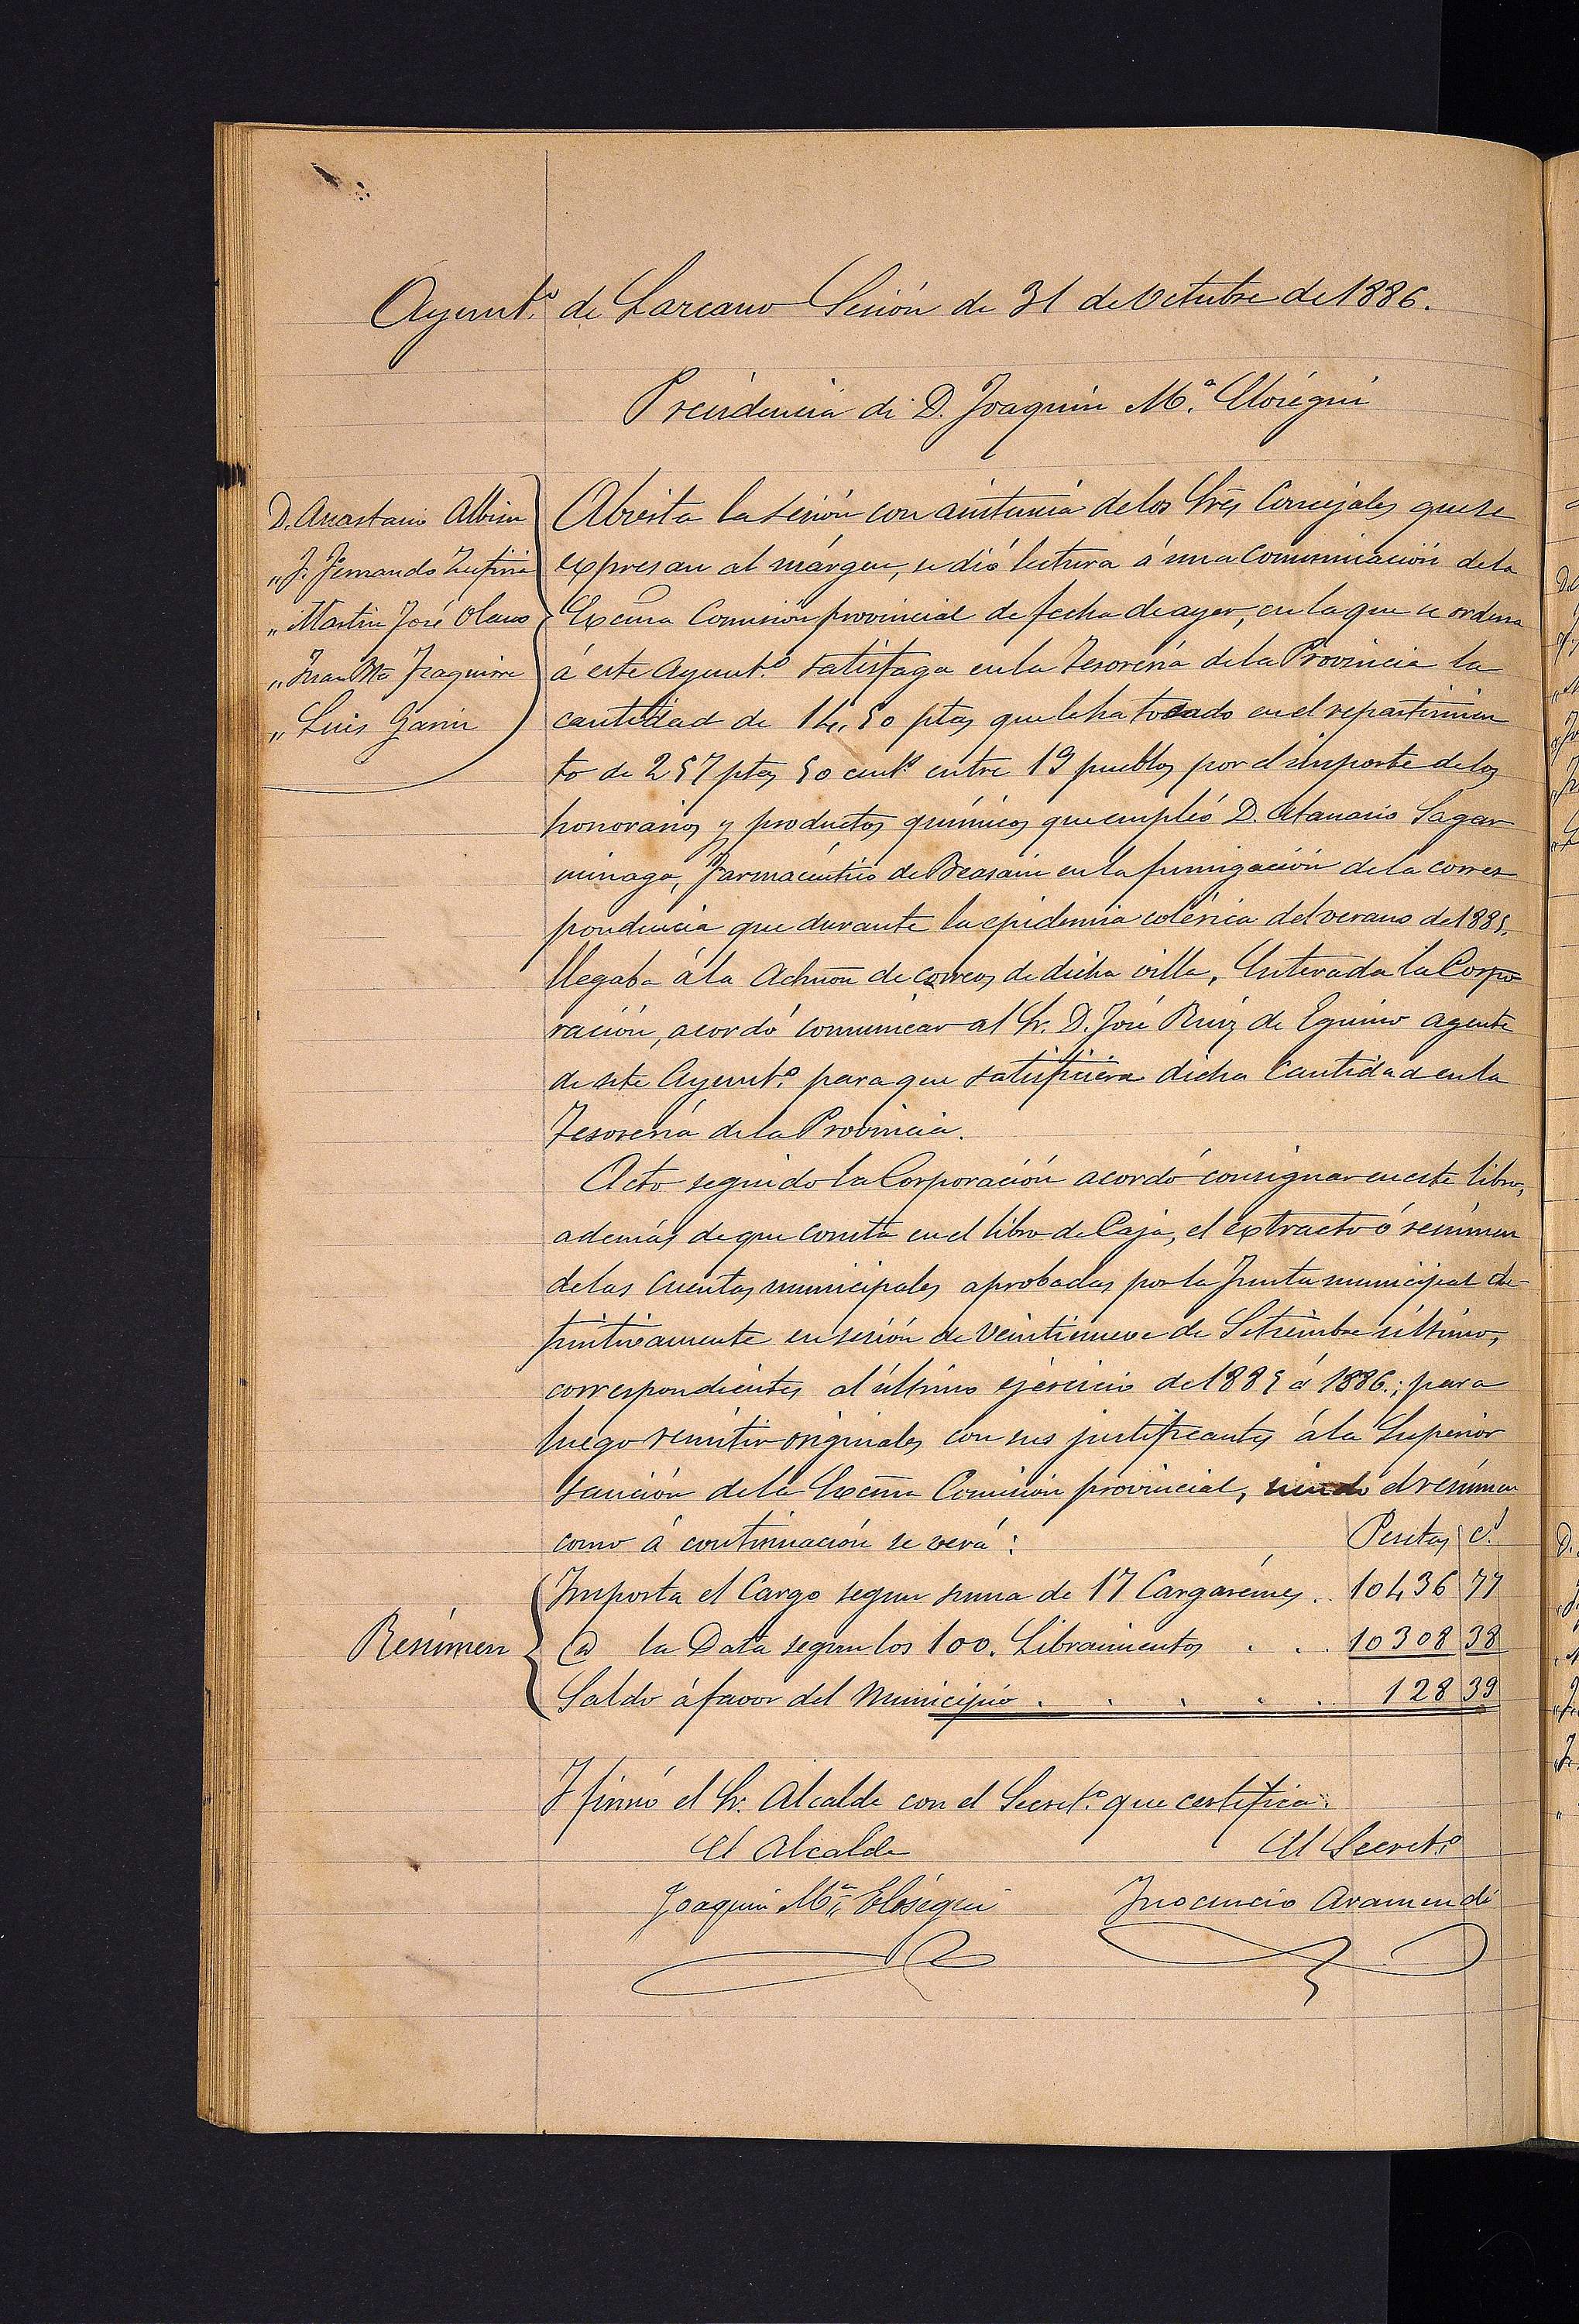 Ayunt.º de Lazcano Sesión de 31 de Octubre de 1886.
Presidencia de D. Joaquin M.ª Elósegui
D. Anastasio Albisu
„ J. Fernando Zufiria
„ Martin José Olano
„ Juan Mª Izaguirre
„ Luis Garin
Abierta la sesión con asistencia de los Sres Concejales que se
expresan al márgen, se dió lectura á una comunicación de la
Excma Comision provincial de fecha de ayer, en la que se ordena
á este Ayunt.º satisfaga en la Tesorería de la Provincia la
cantidad de 14,50 ptas que le ha tocado en el repartimien
to de 257 ptas 50 cents entre 19 pueblos por el importe de los
honorarios y productos químicos que empleó D. Atanasio Sagar
minaga, Farmacéutico de Beasain en la fumigación de la corres
pondencia que durante la epidemia colérica del verano de 1885,
llegaba á la Admon de correos de dicha villa, Enterada la Corpo
ración, acordó comunicar al Sr. D. José Ruiz de Eguino agente
de este Ayunt.º para que satisficiera dicha cantidad en la
Tesorería de la Provincia.
Acto seguido la Corporación acordó consignar en este libro,
además de que consta en el libro de Caja, el extracto ó resúmen
de las cuentas municipales aprobadas por la Junta municipal de-
finitivamente en sesión de veintinueve de Setiembre último,
correspondientes al último ejercicio de 1885 á 1886.; para
luego remitir originales con sus justificantes á la Superior
sanción de la Excma Comisión provincial, siendo el resúmen
como á continuación se verá: Pesetas c.s
Resúmen
Importa el Cargo segun suma de 17 Cargarémes .. 10436 77
(a) la Data segun los 100. Libramientos . . . 10308 38
Saldo á favor del Municipio . . . . . 128 39
Y firmó el Sr. Alcalde con el Secret.º que certifica.
El Alcalde El Secret.º
Joaquin M.ª Elósegui Inocencio Aramendi